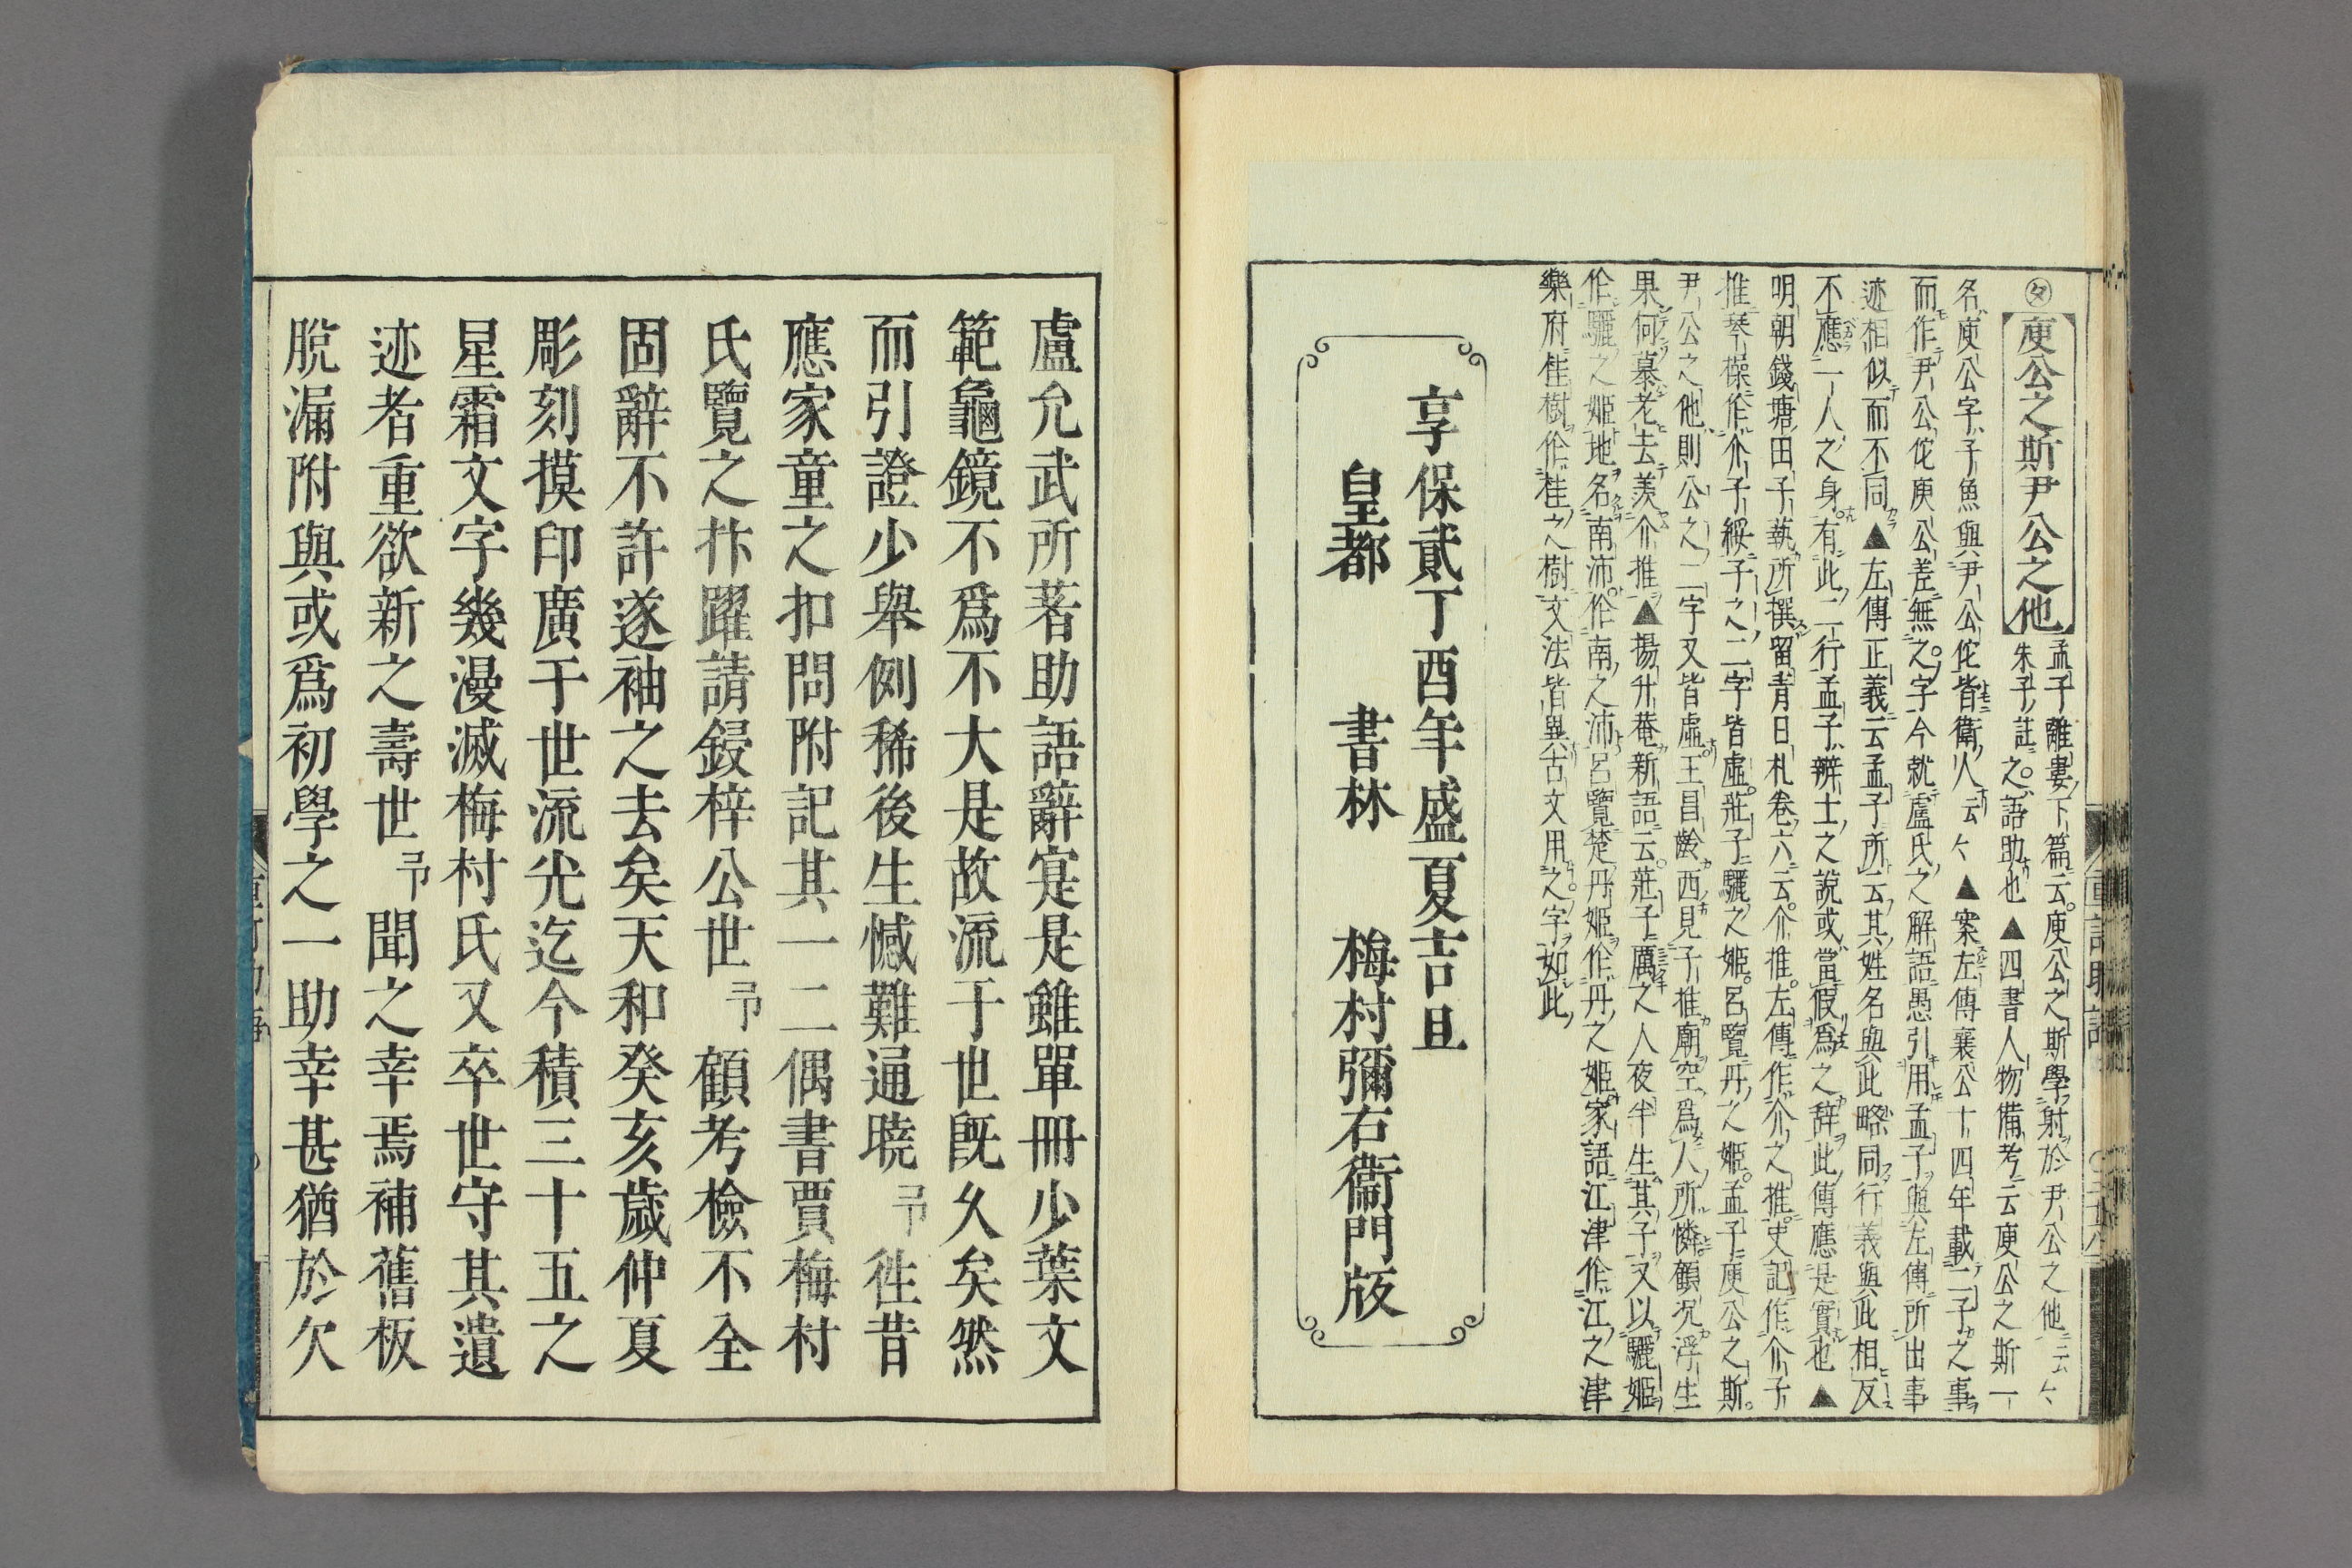 庾公之斯尹公之他
孟子離婁下篇云庾公之斯學射於尹公之他云々
朱子註之語助也▲四書人物備考云庾公之斯一
名庾公字子魚與尹公佗皆衛人云々▲案左傳襄公十四年載二子之事
而作尹公佗庾公差無之字今就盧氏之解語愚引用孟子與左傳所出事
迹相似而不同▲左傳正義云孟子所云其姓名與此略同行義與此相反
不應一人之身有此二行孟子辨士之說或當假爲之辞此傳應是實也▲
明朝錢塘田子執所撰留青日札卷六云介推左傳作介之推史記作介子
推琴操作介子綏子之二字皆虛莊子驪之姬呂覽丹之姬孟子庾公之斯
尹公之他則公之二字又皆虛王昌齡西見子推廟空爲人所憐顧况浮生
果何慕老去羨介推▲揚升菴新語云莊子厲之人夜半生其子又以驪姬
作驪之姬地名南沛作南之沛呂覽楚丹姬作丹之姬家語江津作江之津
樂府桂樹作桂之樹文法皆異古文用之字如此
享保貳丁酉年盛夏吉旦
皇都 書林 梅村彌右衞門版
盧允武所著助語辭寔是雖單冊少葉文
範龜鏡不爲不大是故流于世既久矣然
而引證少舉例稀後生憾難通曉予徃昔
應家童之扣問附記其一二偶書賈梅村
氏覽之抃躍請鋟梓公世予顧考檢不全
固辭不許遂袖之去矣天和癸亥歲仲夏
彫刻摸印廣于世流光迄今積三十五之
星霜文字幾漫滅梅村氏又卒世守其遺
迹者重欲新之壽世予聞之幸焉補舊板
脫漏附與或爲初學之一助幸甚猶於欠